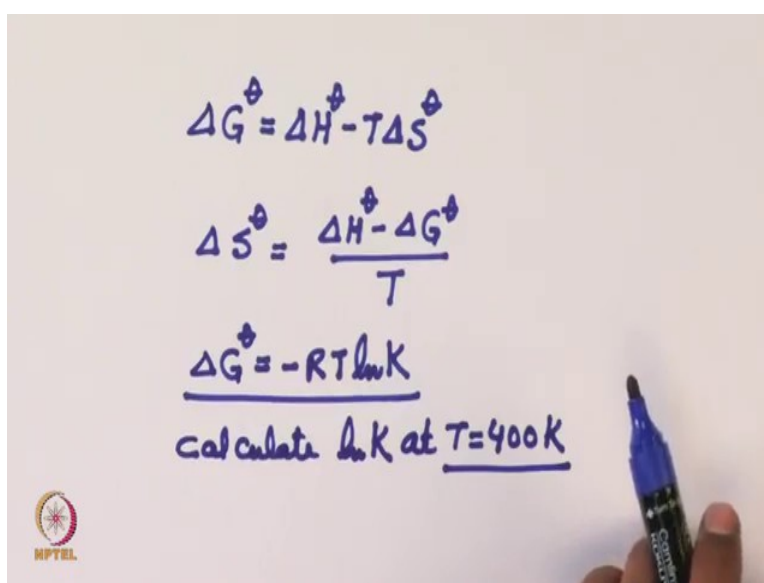 ΔG° = ΔH° - TΔS°
ΔS° = (ΔH° - ΔG°) / T
ΔG° = - RT ln K
Calculate ln K at T = 400 K
NPTEL